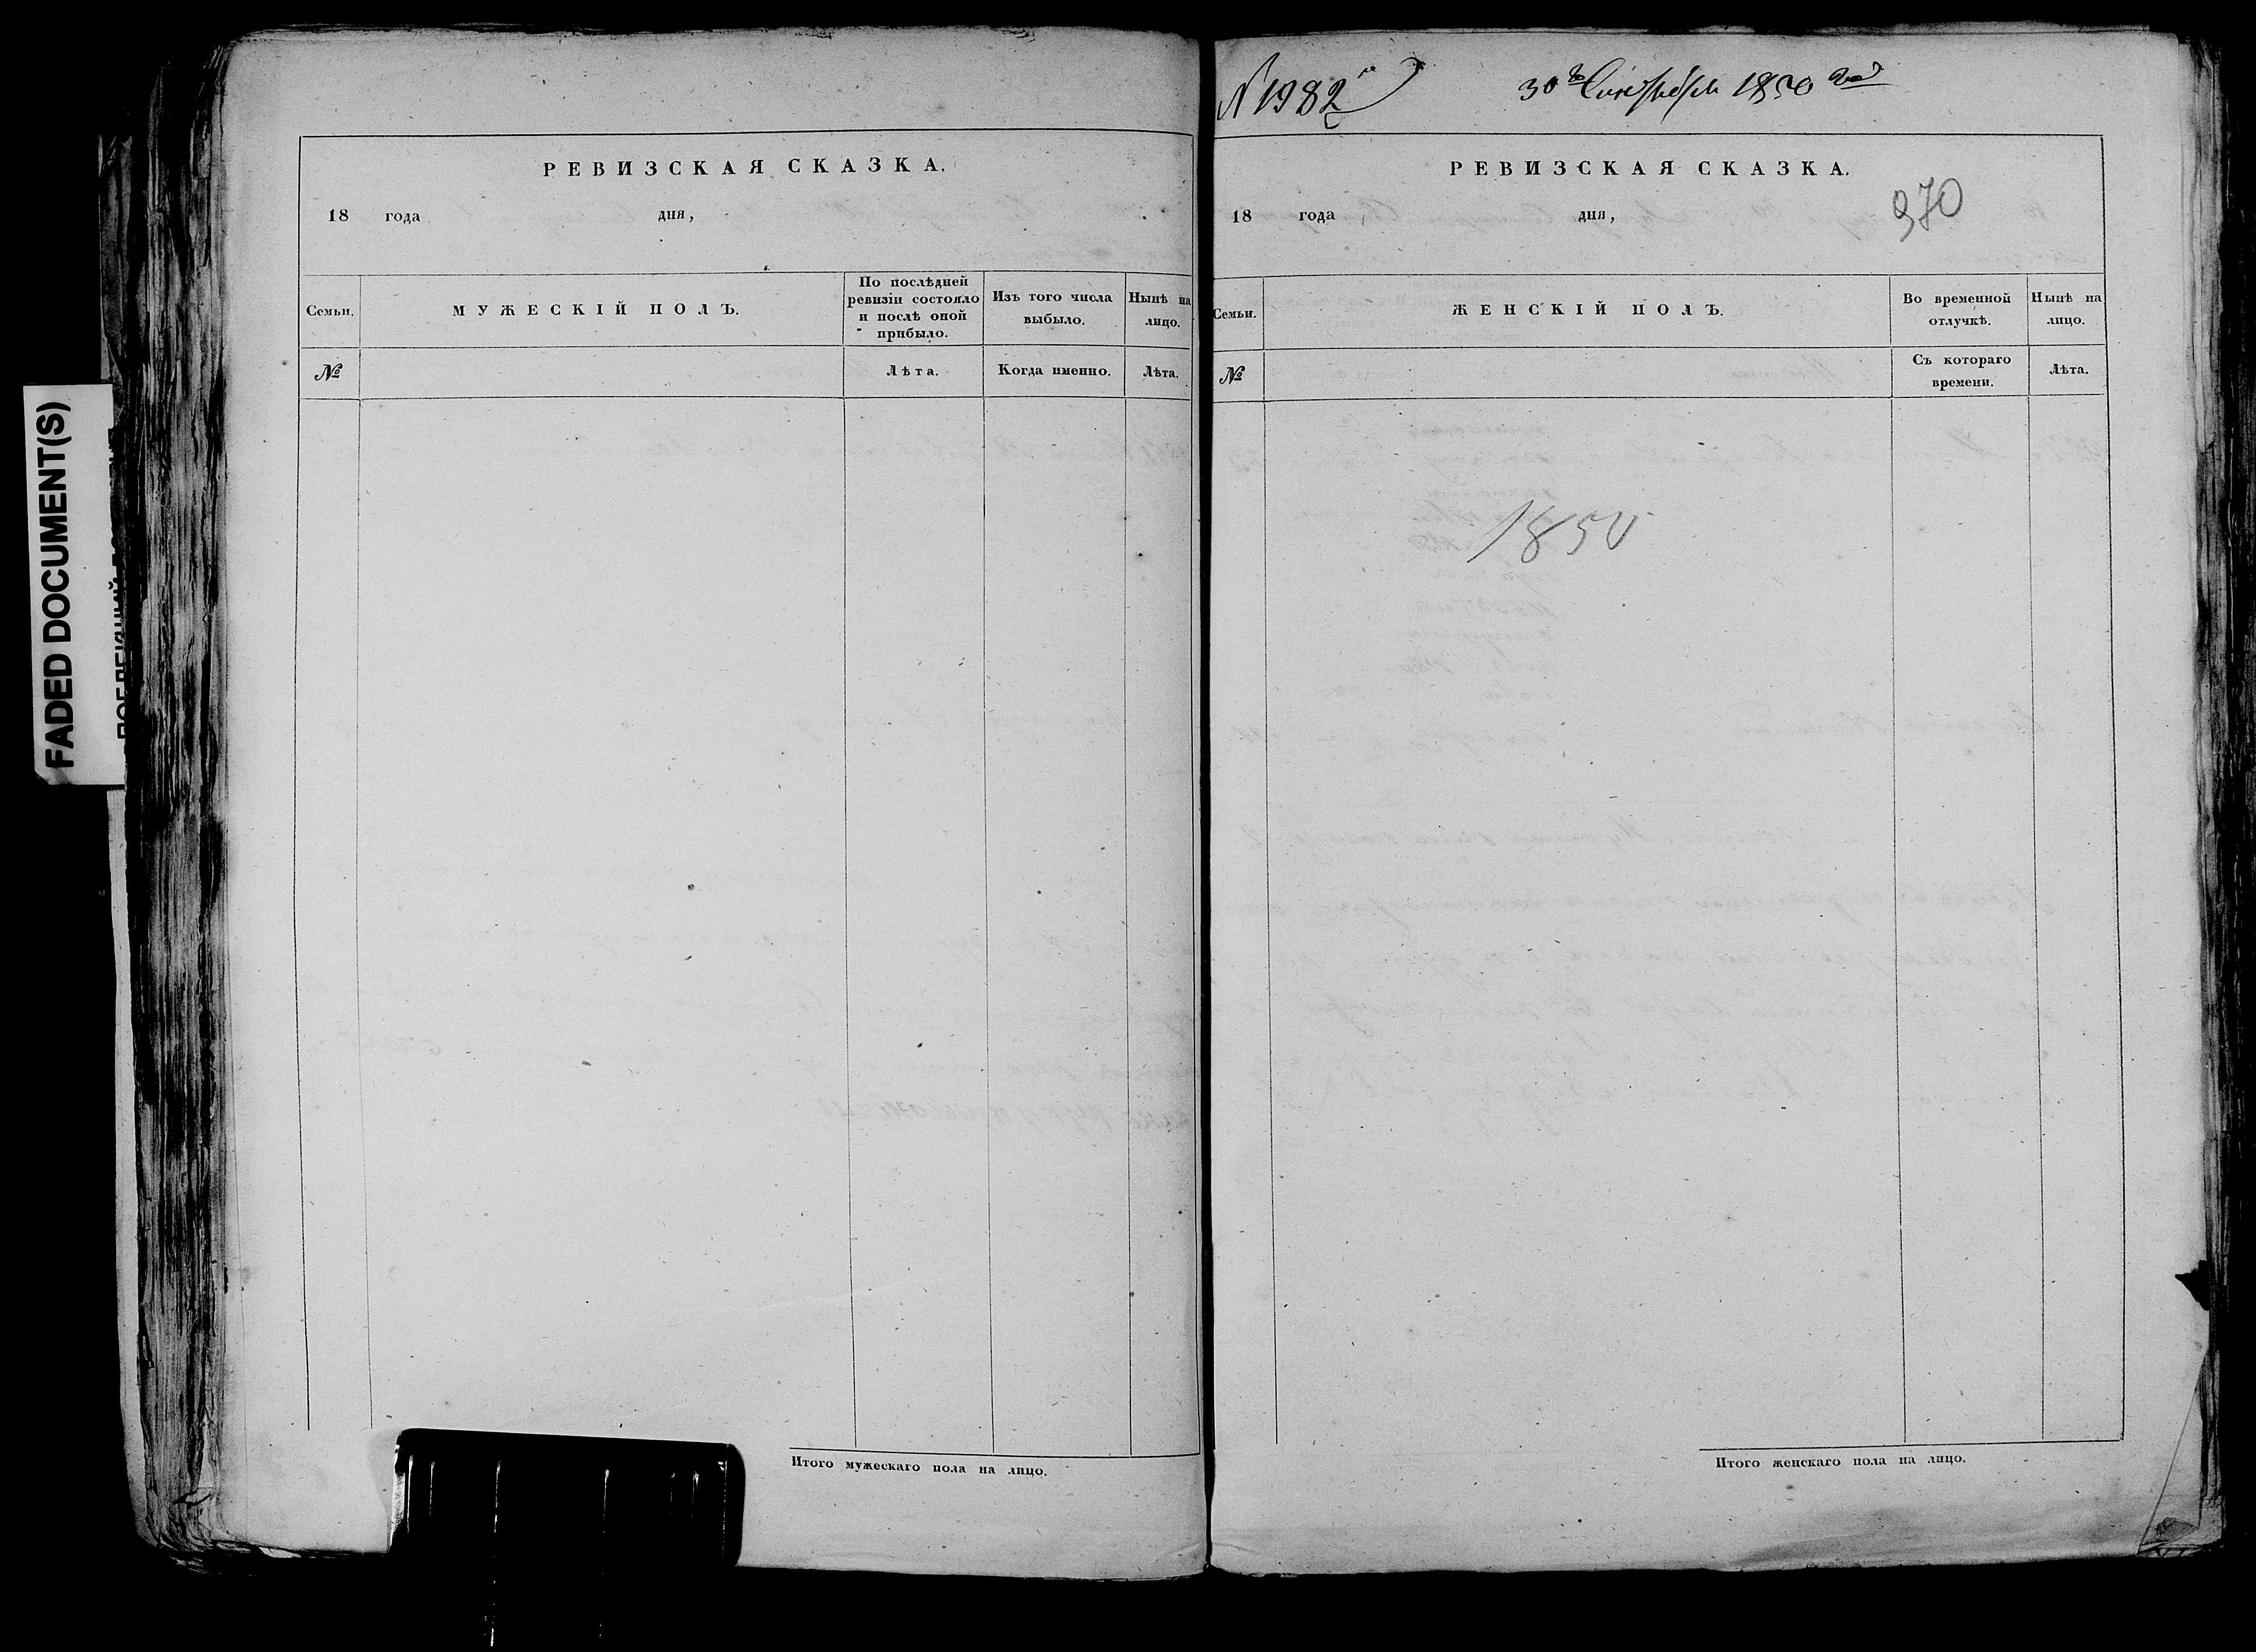 FADED DOCUMENT(S)
РЕВИЗСКАЯ СКАЗКА.
18 года дня,
Семьи.
МУЖЕСКІЙ ПОЛЪ.
По послѣдней
ревизіи состояло
и послѣ оной
прибыло.
Изъ того числа
выбыло.
Нынѣ на
лицо.
№
Лѣта.
Когда именно.
Лѣта.
Итого мужескаго пола на лицо.
№ 1982
30 1850
РЕВИЗСКАЯ СКАЗКА.
970
18 года дня,
Семьи.
ЖЕНСКІЙ ПОЛЪ.
Во временной
отлучкѣ.
Нынѣ на
лицо.
№
Съ котораго
времени.
Лѣта.
1850
Итого женскаго пола на лицо.